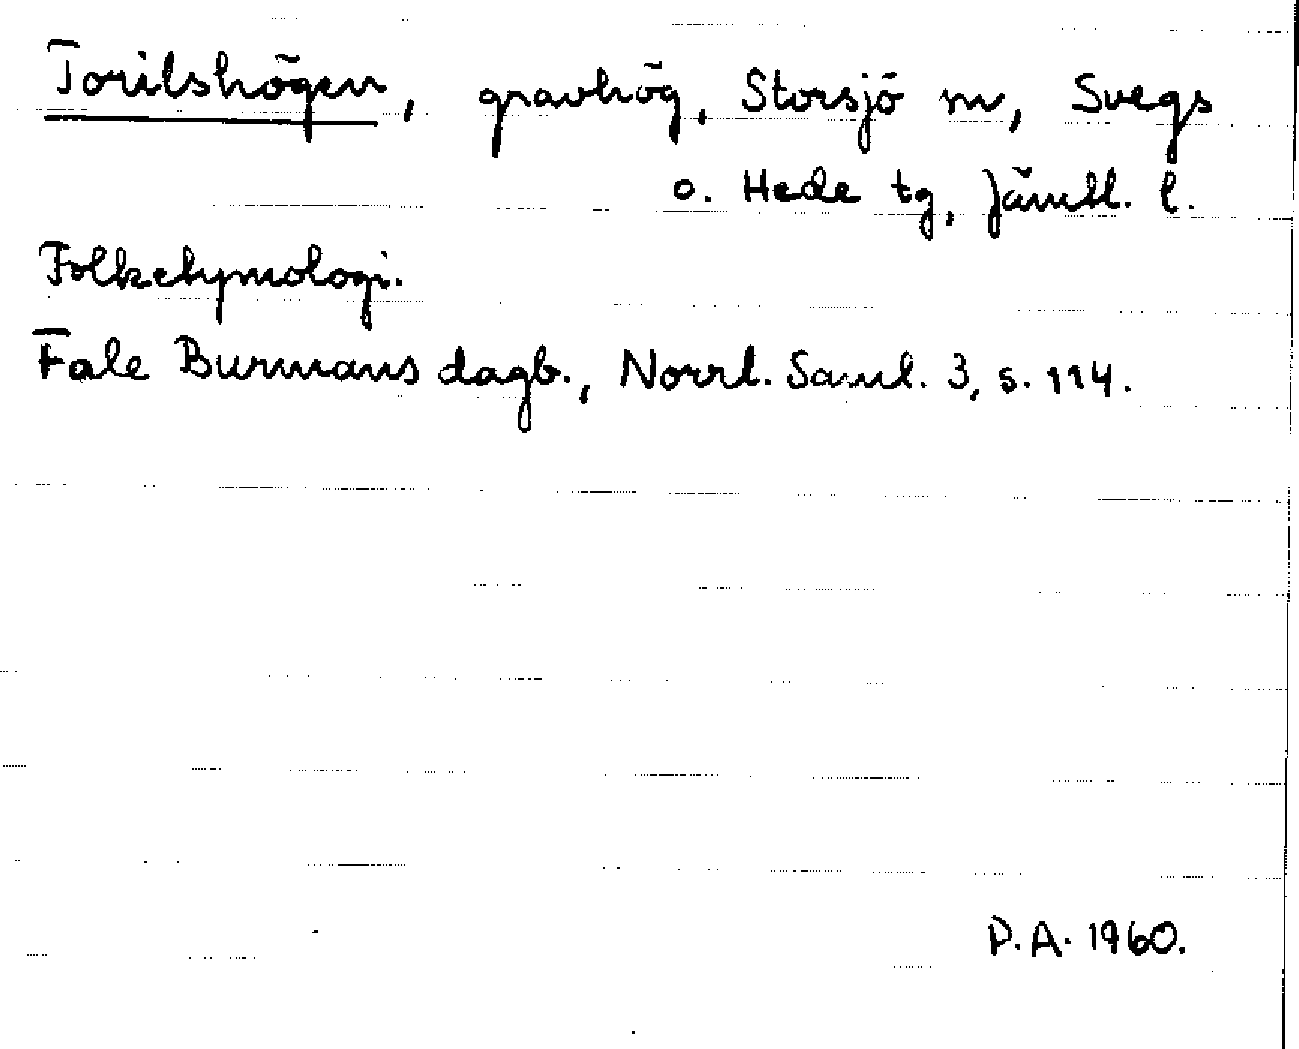 Torilshögen, gravhög, Storsjö m, Svegs
o. Hede tg, Jämtl. l.
Folketymologi.
Fale Burmans dagb., Norrl. Saml. 3, s. 114.
P.A. 1960.